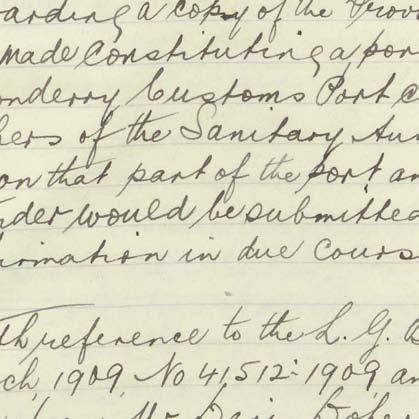 arding a copy of the Prov
made Constituting a por
onderry Customs Port
bers of the Sanitary Au
on that part of the port an
rder would be submitted
irmation in due cours
th reference to the L. G. B
ch, 1909, No 41,512-1909 an